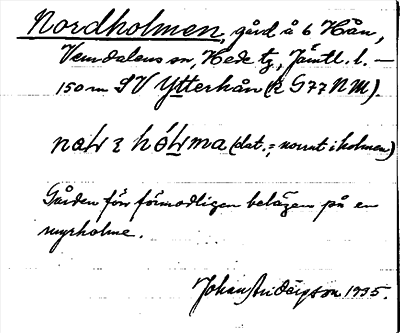 Nordholmen, gård å 6 Hån,
Vemdalens sn, Hede tg, Jämtl. l. —
150 m SV Ytterhån (2 G77 NM)
hólma (dat.; norrut i holmen)
Gården förr förmodligen belägen på en
myrholme.
Johan Andersson 1935.